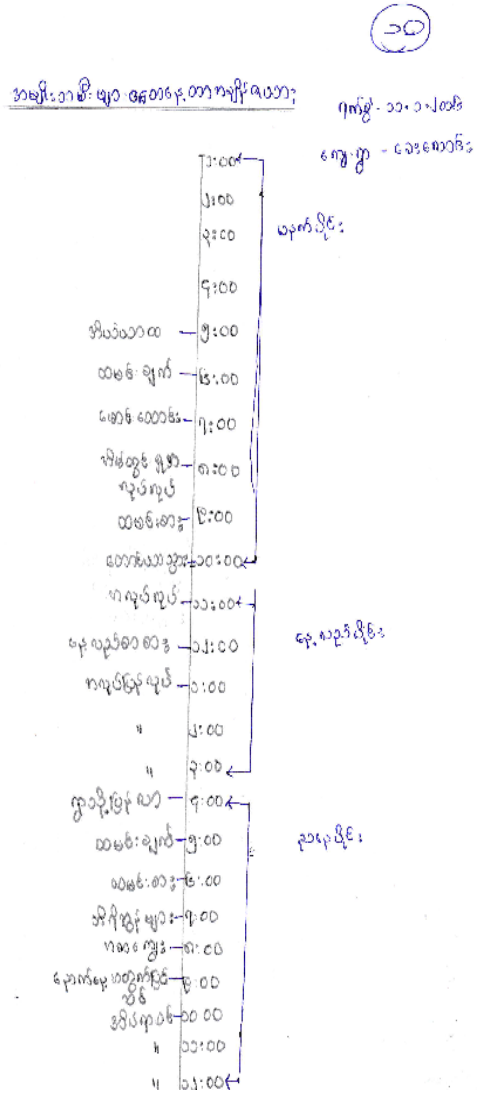 ၁၀
အမျိုးသမီးများ နေ့တာ
ရက်စွဲ - ၁၁.၁.၂၀၁၆
ကျေးရွာ -
၁:၀၀
၂:၀၀
၃:၀၀
မနက်ပိုင်း
၄:၀၀
အိပ်ယာထ - ၅:၀၀
ထမင်းချက် - ၆:၀၀
မောင်းထောင်း - ၇:၀၀
အိမ်တွင်မှုအာ - ၈:၀၀
လုပ်လုပ်
ထမင်းစား - ၉:၀၀
တောင်ယာသွား - ၁၀:၀၀
အလုပ်လုပ် - ၁၁:၀၀
နေ့လည်စာစား - ၁၂:၀၀
နေ့လည်ပိုင်း
အလုပ်ပြန်လုပ် - ၁:၀၀
" ၂:၀၀
" ၃:၀၀
ရွာသို့ပြန်လာ - ၄:၀၀
ထမင်းချက် - ၅:၀၀
ညနေပိုင်း
ထမင်းစား - ၆:၀၀
၇:၀၀
၈:၀၀
နောက်နေ့အတွက်ပြင် ၉:၀၀
ဆင်
အိပ်ရာဝင် - ၁၀:၀၀
" ၁၁:၀၀
" ၁၂:၀၀